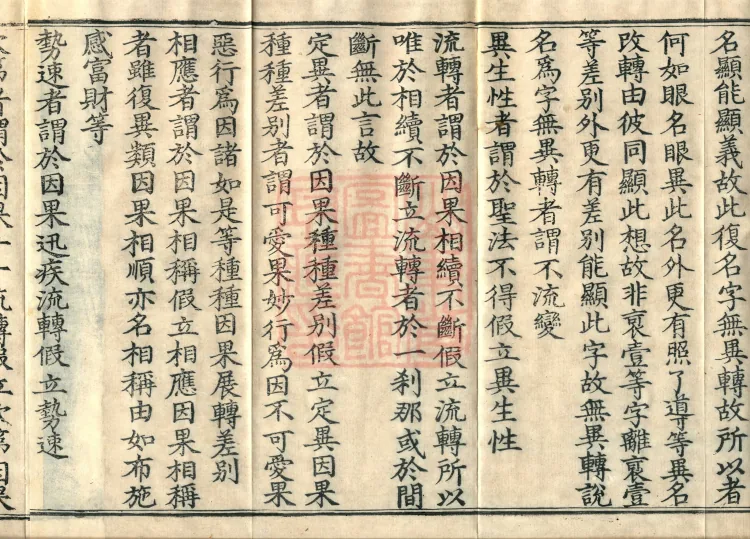 名顯能顯義故此復名字無異轉故所以者
何如眼名眼異此名外更有照了導等異名
改轉由彼同顯此想故非裒壹等字離裒壹
等差別外更有差別能顯此字故無異轉說
名為字無異轉者謂不流變
異生性者謂於聖法不得假立異生性
流轉者謂於因果相續不斷假立流轉所以
唯於相續不斷立流轉者於一刹那或於間
斷無此言故
定異者謂於因果種種差別假立定異因果
種種差別者謂可愛果妙行為因不可愛果
惡行為因諸如是等種種因果展轉差別
相應者謂於因果相稱假立相應因果相稱
者雖復異類因果相順亦名相稱由如布施
感富財等
勢速者謂於因果迅疾流轉假立勢速
者謂於因果一一流轉假立次第因果